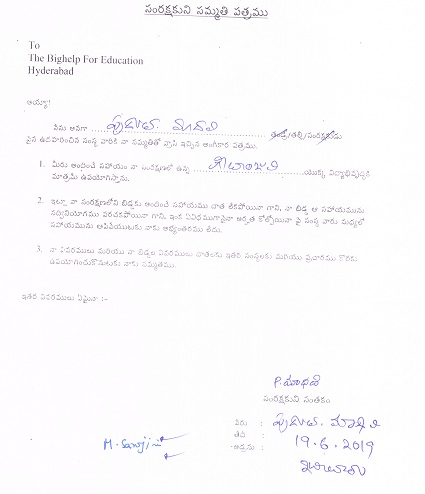 సంరక్షకుని సమ్మతి పత్రము
To
The Bighelp For Education
Hyderabad
అయ్యా!
నేను అనగా ............ తండ్రి/తల్లి/సంరక్షకుడు
పైన ఉదహరించిన సంస్థ వారికి నా సమ్మతితో వ్రాసి ఇచ్చిన అంగీకార పత్రము.
1. మీరు అందించే సహాయం నా సంరక్షణలో ఉన్న ............ యొక్క విద్యాభివృద్ధికి
మాత్రమే ఉపయోగిస్తాను.
2. ఇట్లా నా సంరక్షణలోని బిడ్డకు అందించే సహాయము దాత లేకపోయినా గాని, నా బిడ్డ ఆ సహాయమును
సద్వినియోగము పరచకపోయినా గాని, ఇంక ఏవిధముగానైనా అర్హత కోల్పోయినా పై సంస్థ వారు మధ్యలో
సహాయమును ఆపివేయుటకు నాకు అభ్యంతరము లేదు.
3. నా వివరములు మరియు నా బిడ్డల వివరములు దాతలకు ఇతర సంస్థలకు మరియు ప్రచారము కొరకు
ఉపయోగించుకొనుటకు నాకు సమ్మతము.
ఇతర వివరములు ఏమైనా :-
P. మాధవి
సంరక్షకుని సంతకం
పేరు : మాధవి
తేది : 19.6.2019